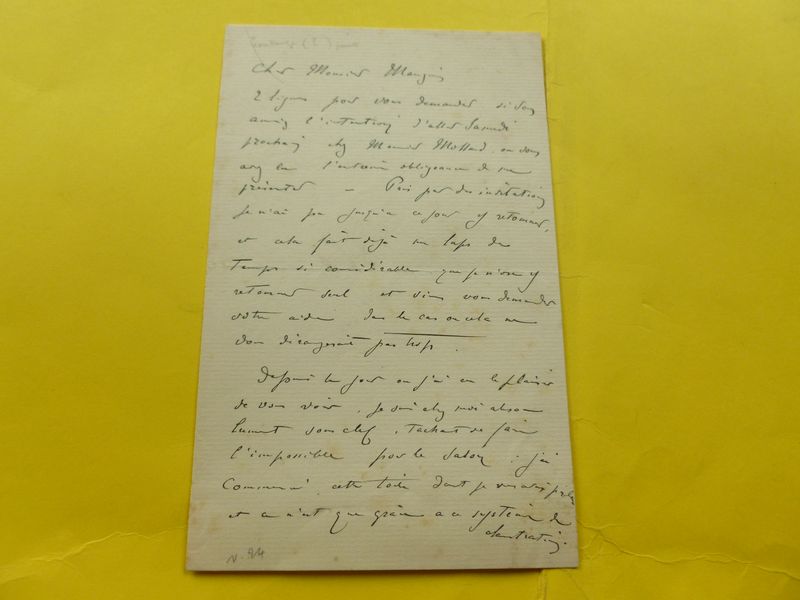 Cher Monsieur Mangin
2 lignes pour vous demander si vous
avez l'intention d'aller Samedi
prochain chez Monsieur Mollard, ou vous
avez eu l'extreme obligeance de me
présenter – Pris par des invitations
je n'ai pu jusqu'a ce jour y retourner,
et cela fait déjà un laps de
Temps si considérable que je n'ose y
retourner seul et viens vous demander
votre aide dans le cas ou cela ne
vous dérangerait pas trop.
Depuis le jour ou j'ai eu le plaisir
de vous voir, je suis chez moi absolu
lument sous clef, tachant de faire
l'impossible pour le Salon : j'ai
Commencé cette toile dont je vous avais parlé
et ce n'est que grâce a ce système de
claustration.
N. 24